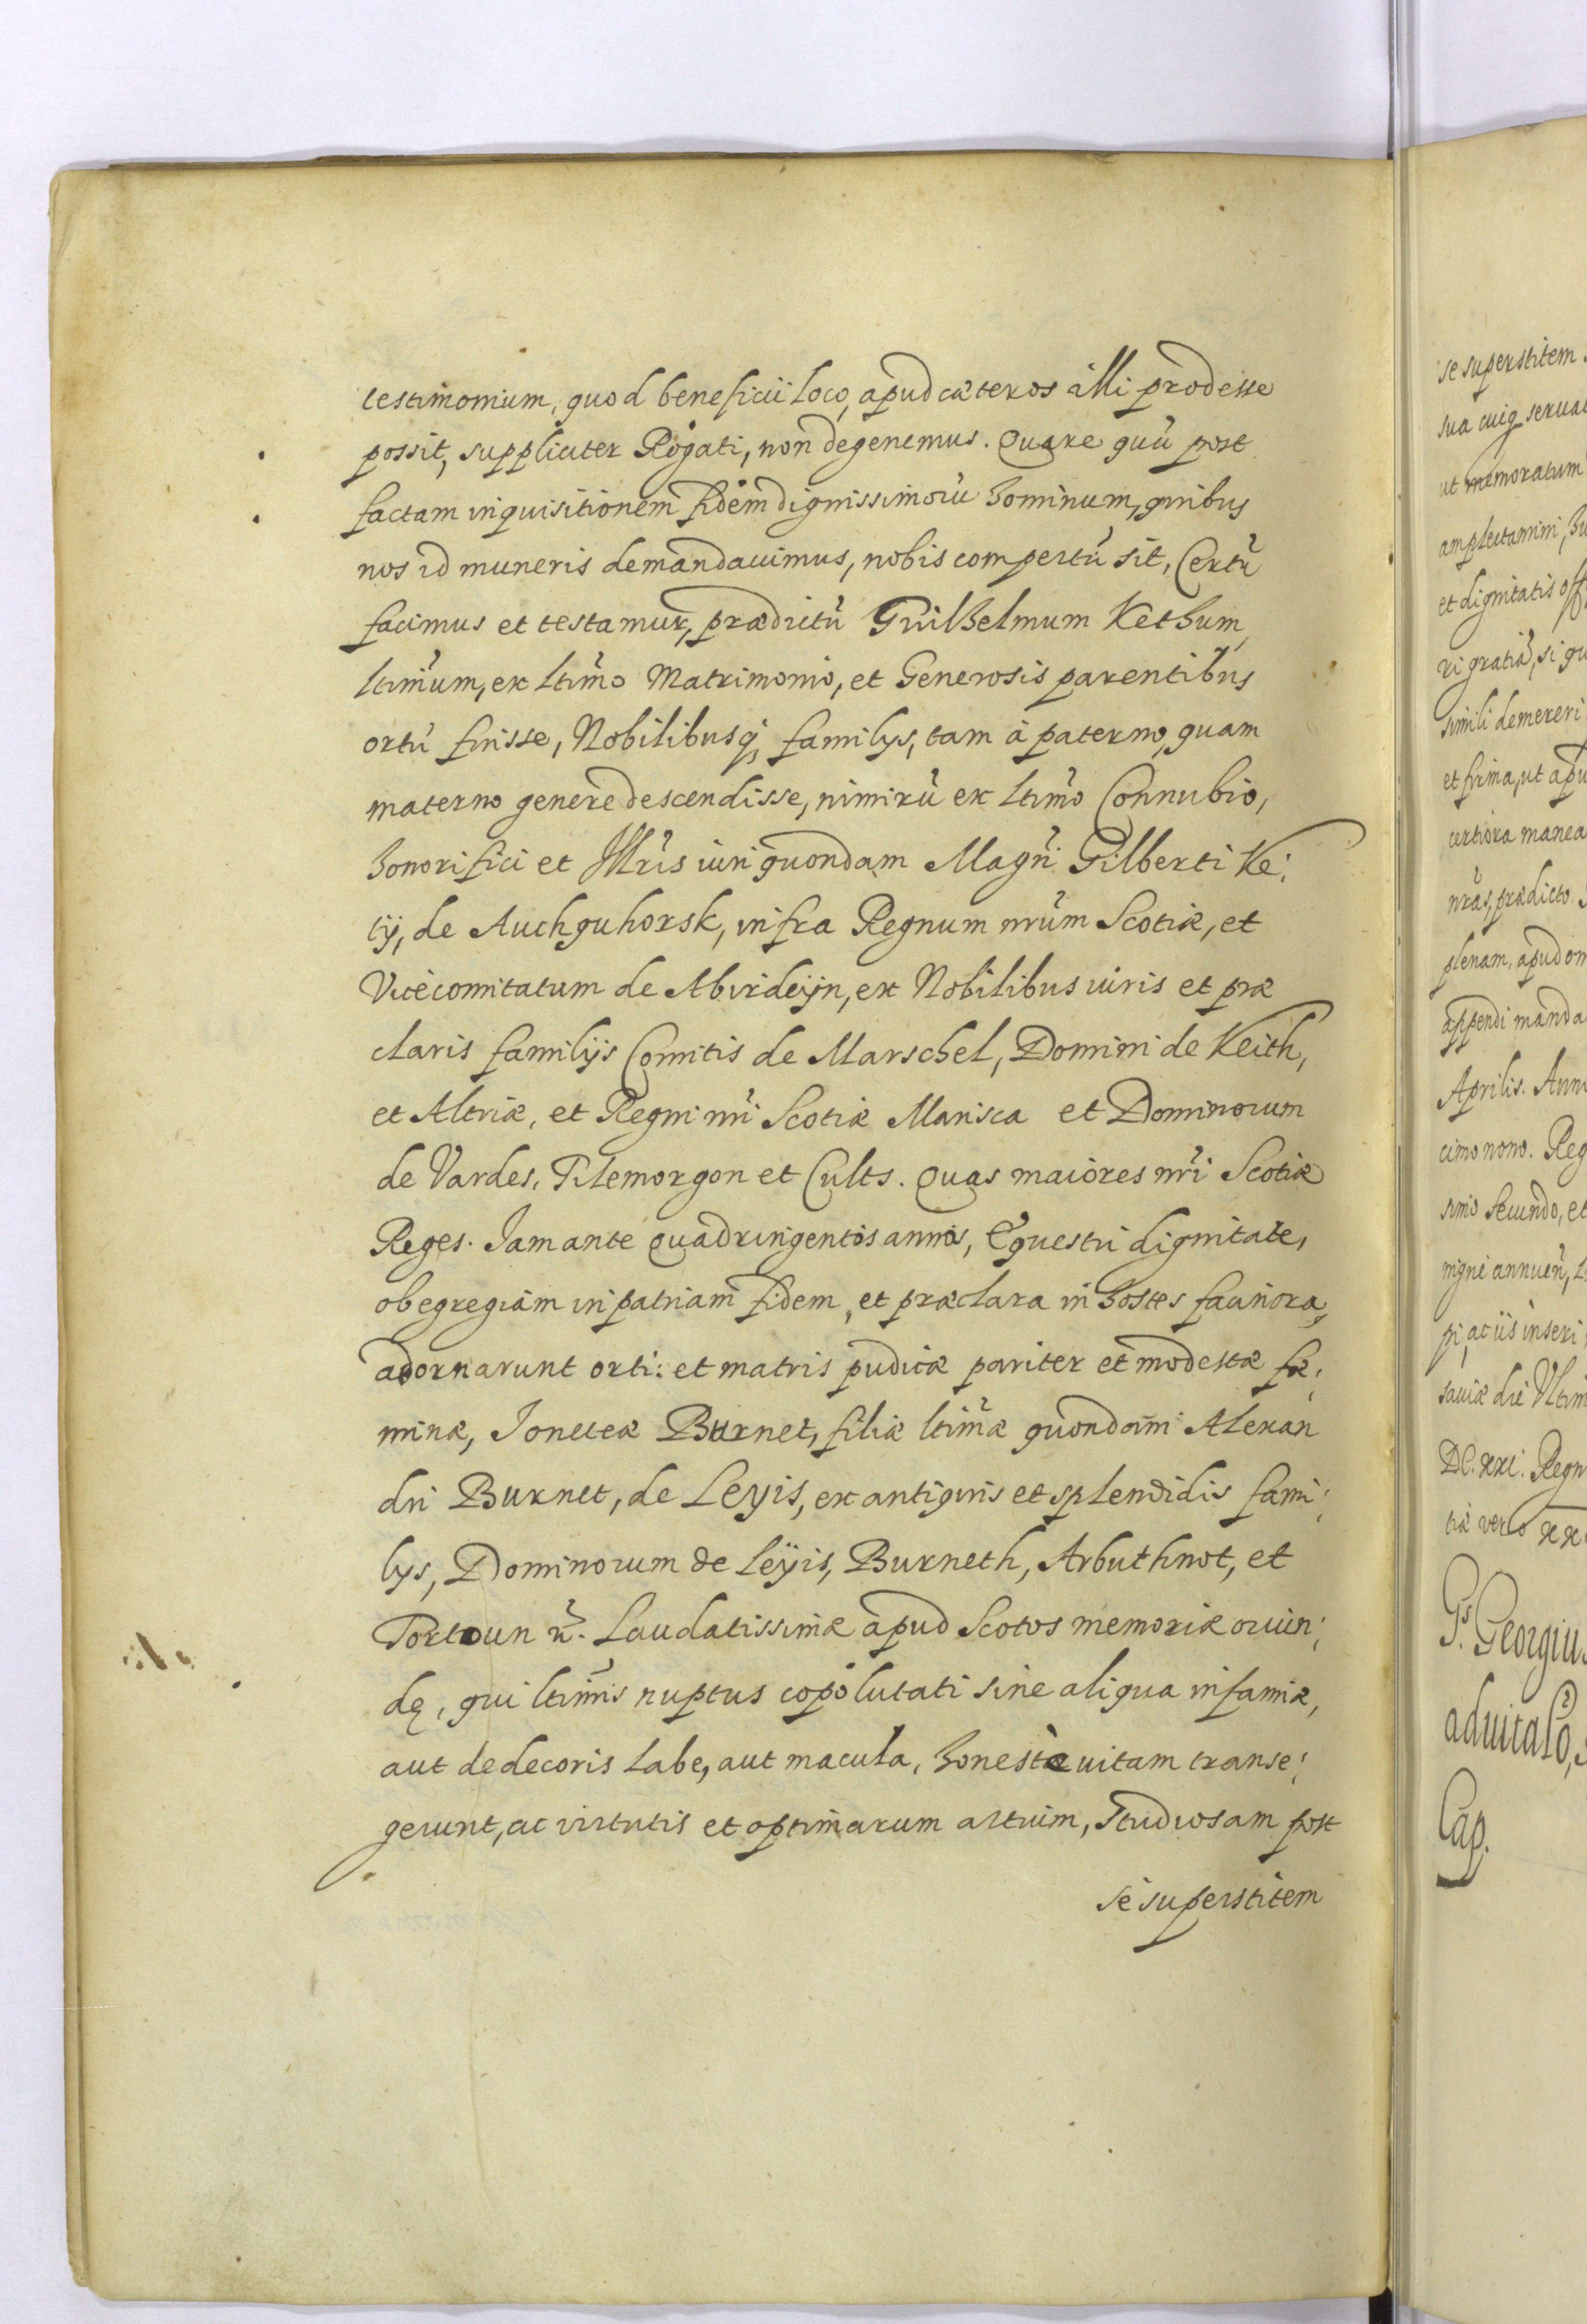 testimonium, quod beneficii loco, apud cæteros illi prodesse
possit, suppliciter Rogati, non degenemus. Quare quũ post
factam inquisitionem fidem dignissimorũ hominum, quibus
nos id muneris demandauimus, nobis compertũ sit, Certũ
facimus et testamur, prædictũ Guilhelmum Kethum,
ltimũm, ex ltimõ Matrimonio, et Generosis parentibus
ortũ fuisse, Nobilibusq; familijs, tam à paterno, quam
materno genere descendisse, nimirũ ex ltimõ Connubio,
honorifici et Illris uiri quondam Magñi Gilberti Ke:
tij, de Auchquhorsk, infra Regnum nrũm Scotiæ, et
Vicecomitatum de Abirdeijn, ex Nobilibus uiris et præ
claris familijs Comitis de Marschel, Domini de Keith,
et Altriæ, et Regni nrĩ Scotiæ Marisca et Dominorum
de Vardes, Pitemorgon et Cults. Quas maiores nrĩ Scotiæ
Reges. Jam ante quadringentos annos, Equestri dignitate,
ob egregiam in patriam fidem, et præclara in hostes facinora,
adornarunt orti: et matris pudicæ pariter et modestæ fæ:
minæ, Joneteæ Burnet, filiæ ltimæ̃ quondam Alexan
dri Burnet, de Leyis, ex antiquis et splendidis fami:
lijs, Dominorum de Leÿis, Burneth, Arbuthnot, et
Portoun ñ. Laudatissimæ apud Scotos memoriæ oriun:
dę, qui ltimĩs nuptus copolutati sine aliqua infamiæ,
aut dedecoris labe, aut macula, honestè uitam transe:
gerunt, ac virtutis et optimarum artium, studiosam post
se superstitem
se superstitem
sua cuiq serua
ut memoratum
amplectamini,
et dignitatis off
ri gratiã, si qu
simili demereri
et firma, ut apu
certiora manea
nrãs, prædicto
plenam, apud om
appendi manda
Aprilis. Ann
cimo nono. Reg
simo Secundo, et
nigne annueñ,
pi, ac iis inseri
sauiæ die Vltim
DC. xxi. Regn
tiæ vero xx
Gs. Georgius
Cap.